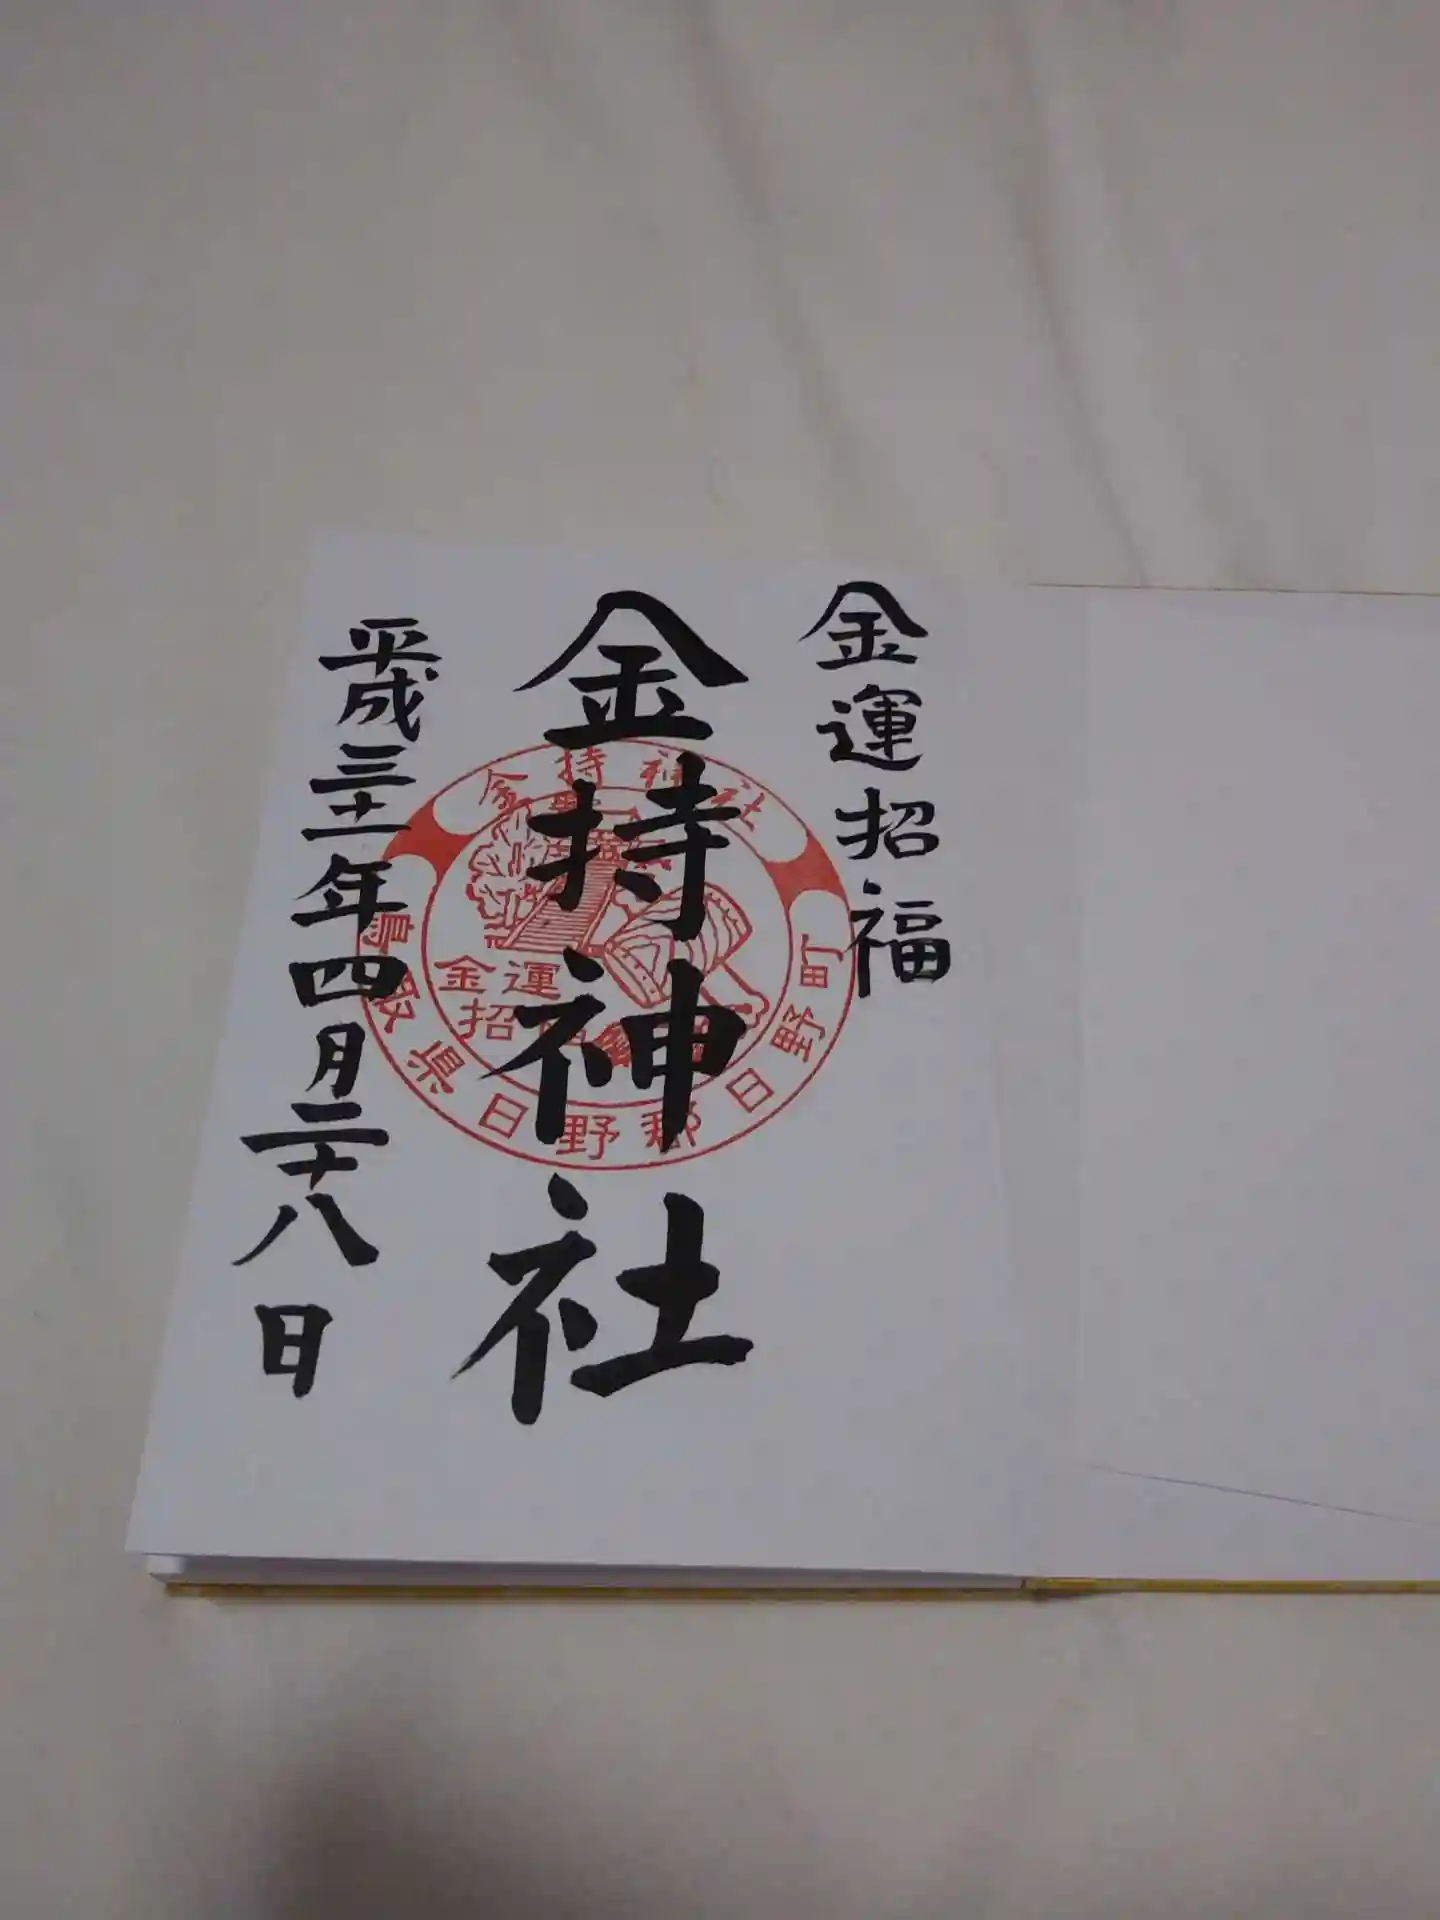 金運招福
金持神社
平成三十一年四月二十八日
金持神社
鳥取県日野郡日野町
金運
招福